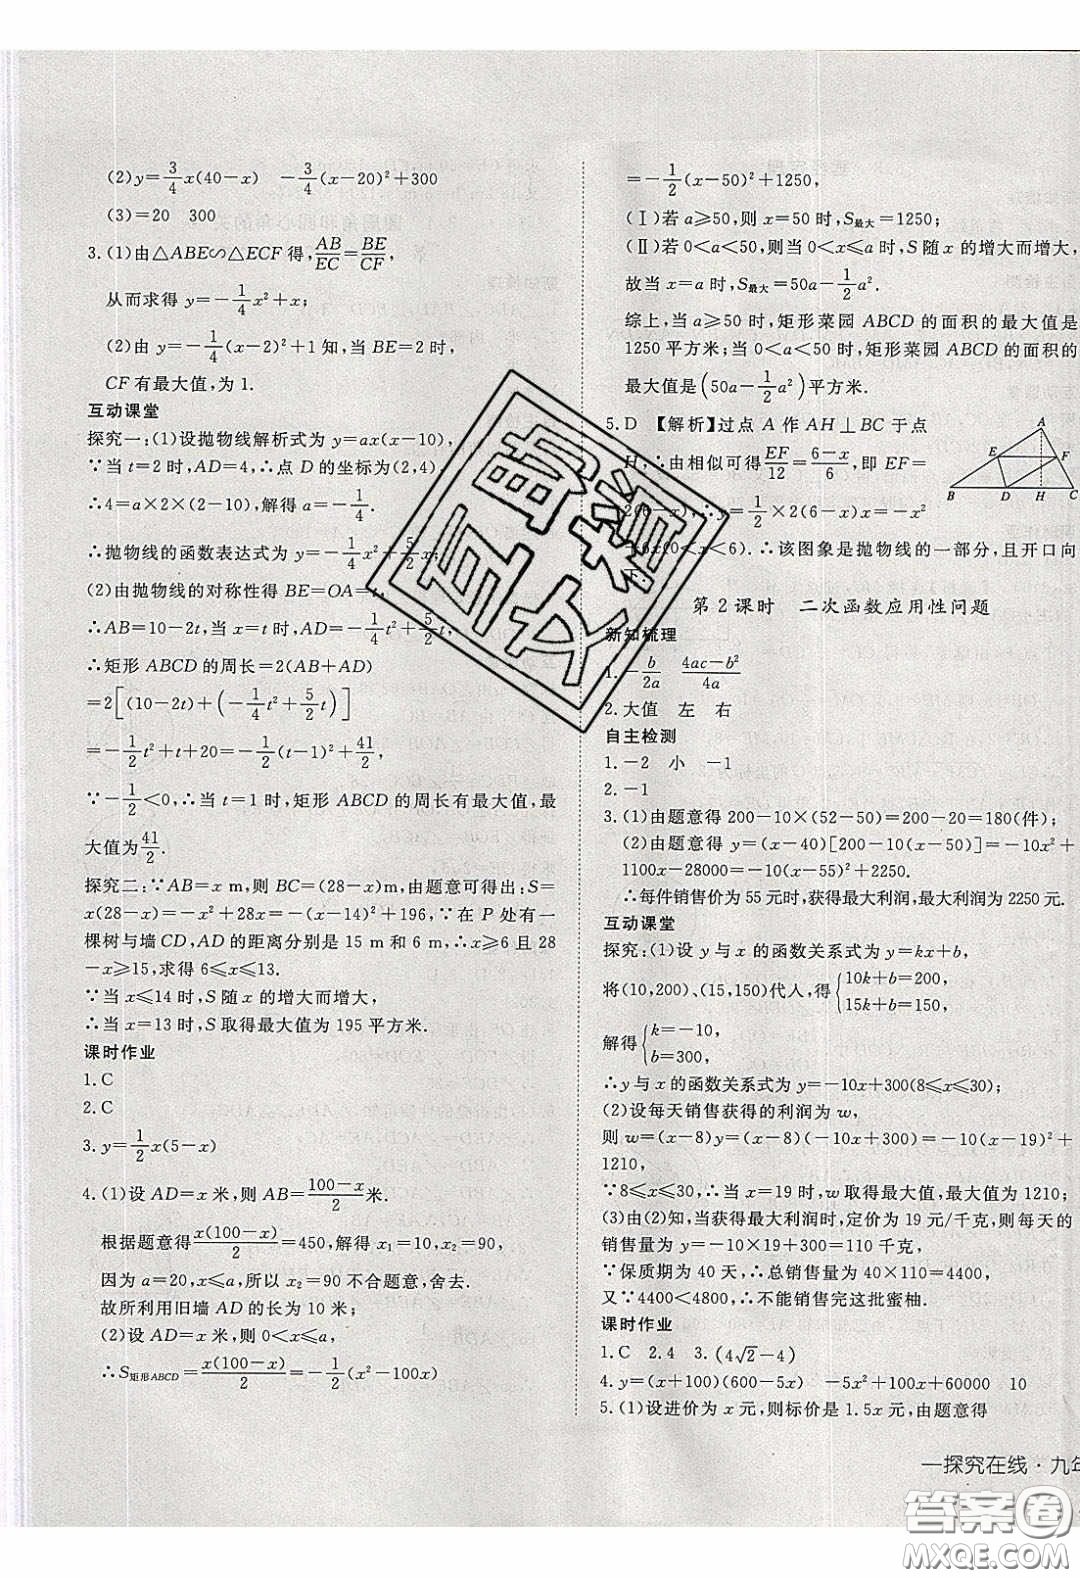 (2)y=3/4x(40-x)  -3/4(x-20)²+300
(3)=20  300
3.(1)由△ABE∽△ECF得,AB/EC=BE/CF,
从而求得 y=-1/4x²+x;
(2)由 y=-1/4(x-2)²+1知,当BE=2时,
CF有最大值,为1.
互动课堂
探究一:(1)设抛物线解析式为 y=ax(x-10),
∵当t=2时,AD=4,∴点D的坐标为(2,4).
∴4=a×2×(2-10),解得a=-1/4.
∴抛物线的函数表达式为y=-1/4x²+5/2x;
(2)由抛物线的对称性得BE=OA=t,
∴AB=10-2t,当x=t时,AD=-1/4t²+5/2t,
∴矩形ABCD的周长=2(AB+AD)
=2[(10-2t)+(-1/4t²+5/2t)]
=-1/2t²+t+20=-1/2(t-1)²+41/2,
∵-1/2<0,∴当t=1时,矩形ABCD的周长有最大值,最
大值为41/2.
探究二:∵AB=x m,则BC=(28-x)m,由题意可得出:S=
x(28-x)=-x²+28x=-(x-14)²+196,∵在P处有一
棵树与墙CD,AD的距离分别是15 m和6 m,∴x≥6且28
-x≥15,求得6≤x≤13.
∵当x≤14时,S随x的增大而增大,
∴当x=13时,S取得最大值为195平方米.
课时作业
1.C
2.C
3.y=1/2x(5-x)
4.(1)设AD=x米,则AB=(100-x)/2米.
根据题意得x(100-x)/2=450,解得x₁=10,x₂=90,
因为a=20,x≤a,所以x₂=90不合题意,舍去.
故所利用旧墙AD的长为10米;
(2)设AD=x米,则0<x≤a,
∴S矩形ABCD=x(100-x)/2=-1/2(x²-100x)
=-1/2(x-50)²+1250,
(Ⅰ)若a≥50,则x=50时,S最大=1250;
(Ⅱ)若0<a<50,则当0<x≤a时,S随x的增大而增大,
故当x=a时,S最大=50a-1/2a².
综上,当a≥50时,矩形菜园ABCD的面积的最大值是
1250平方米;当0<a<50时,矩形菜园ABCD的面积的
最大值是(50a-1/2a²)平方米.
5.D 【解析】过点A作AH⊥BC于点
H,∴由相似可得EF/12=(6-x)/6,即EF=
2(6-x),∴y=1/2×2(6-x)x=-x²
+6x(0<x<6).∴该图象是抛物线的一部分,且开口向
下.
A
E
F
B
D
H
C
第2课时 二次函数应用性问题
新知梳理
1.-b/2a  (4ac-b²)/4a
2.大值 左 右
自主检测
1.-2 小 -1
2.-1
3.(1)由题意得200-10×(52-50)=200-20=180(件);
(2)由题意得y=(x-40)[200-10(x-50)]=-10x²+
1100x-28000=-10(x-55)²+2250.
∴每件销售价为55元时,获得最大利润,最大利润为2250元.
互动课堂
探究:(1)设y与x的函数关系式为y=kx+b,
将(10,200)、(15,150)代入,得{10k+b=200, 15k+b=150,
解得{k=-10, b=300,
∴y与x的函数关系式为y=-10x+300(8≤x≤30);
(2)设每天销售获得的利润为w,
则w=(x-8)y=(x-8)(-10x+300)=-10(x-19)²+
1210,
∵8≤x≤30,∴当x=19时,w取得最大值,最大值为1210;
(3)由(2)知,当获得最大利润时,定价为19元/千克,则每天的
销售量为y=-10×19+300=110千克,
∵保质期为40天,∴总销售量为40×110=4400,
又∵4400<4800,∴不能销售完这批蜜柚.
课时作业
1.C 2.4 3.(4√2-4)
4.y=(x+100)(600-5x)  -5x²+100x+60000  10
5.(1)设进价为x元,则标价是1.5x元,由题意得
一探究在线·九年
答案圈
MXQE.COM